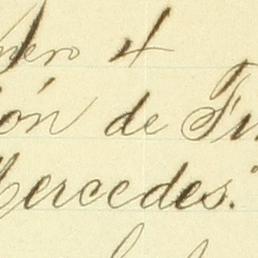 mero 4
ión de Fi
Mercedes."